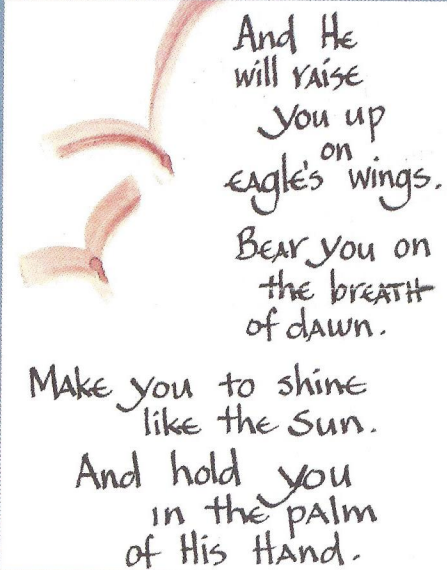 And He
will raise
you up
on
eagle's wings.
Bear you on
the breath
of dawn.
Make you to shine
like the sun.
And hold you
in the palm
of His Hand.